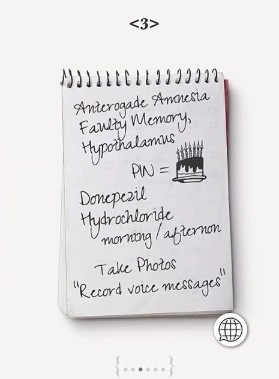 <3>
Anterogade Amnesia
Faulty Memory,
Hypothalamus
PIN =
Donepezil
Hydrochloride
morning / afternon
Take Photos
"Record voice messages"